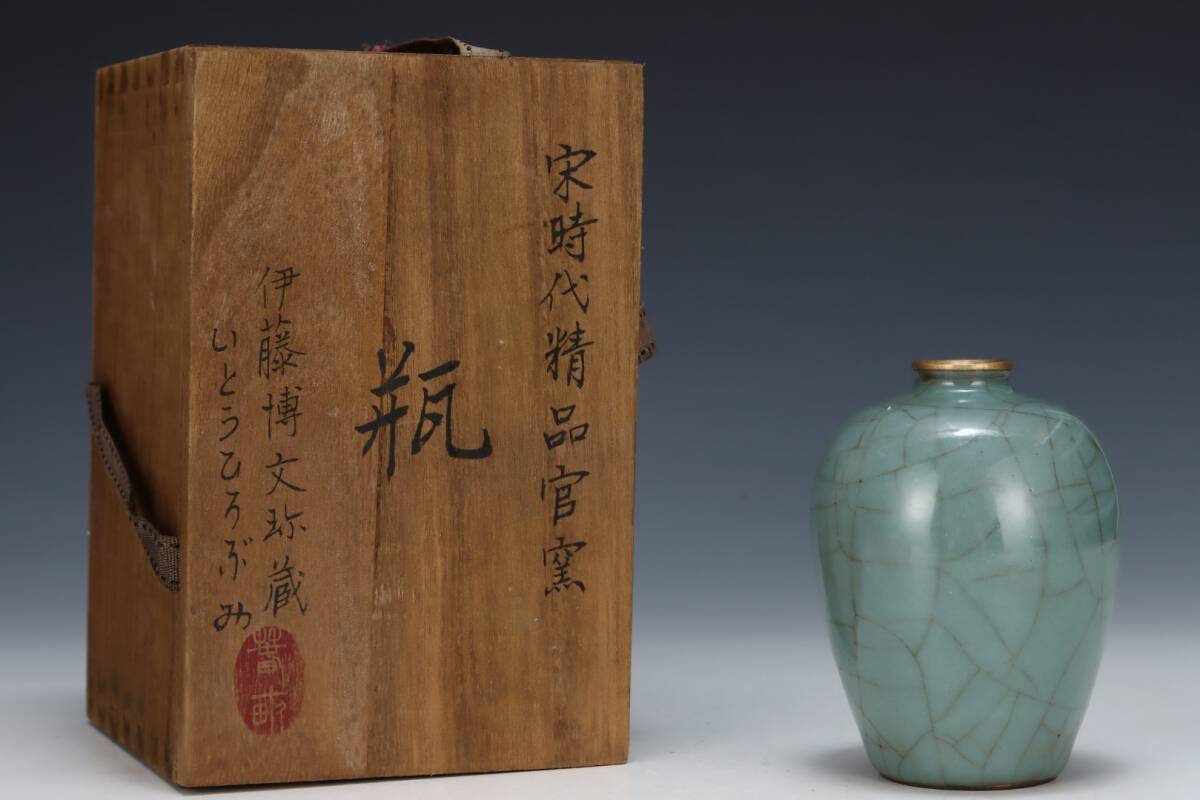 宋時代精品官窯
瓶
伊藤博文珎蔵
いとうひろぶみ